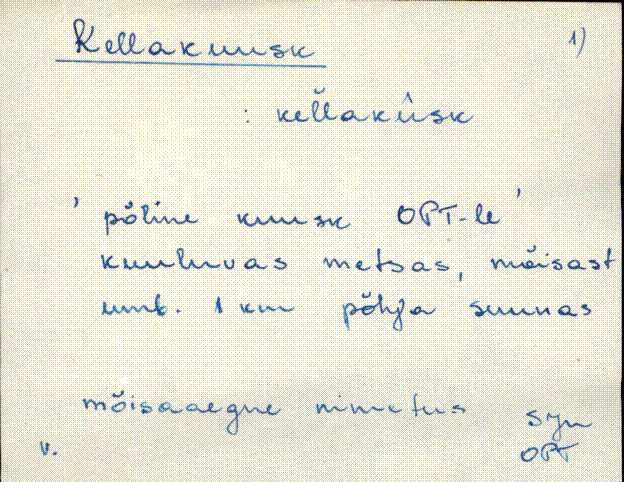 Kellakuusk 1)
: kel̆lakûsk
' põline kuusk OPT-le '
kuuluvas metsas, mõisast
umb. 1 km põhja suunas
mõisaaegne nimetus
Syn
v. OPT